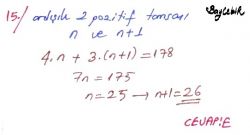 15./ ardışık 2 pozitif tamsayı
n ve n+1
4.n + 3.(n+1) = 178
7n = 175
n = 25 → n+1 = 26
CEVAP: E